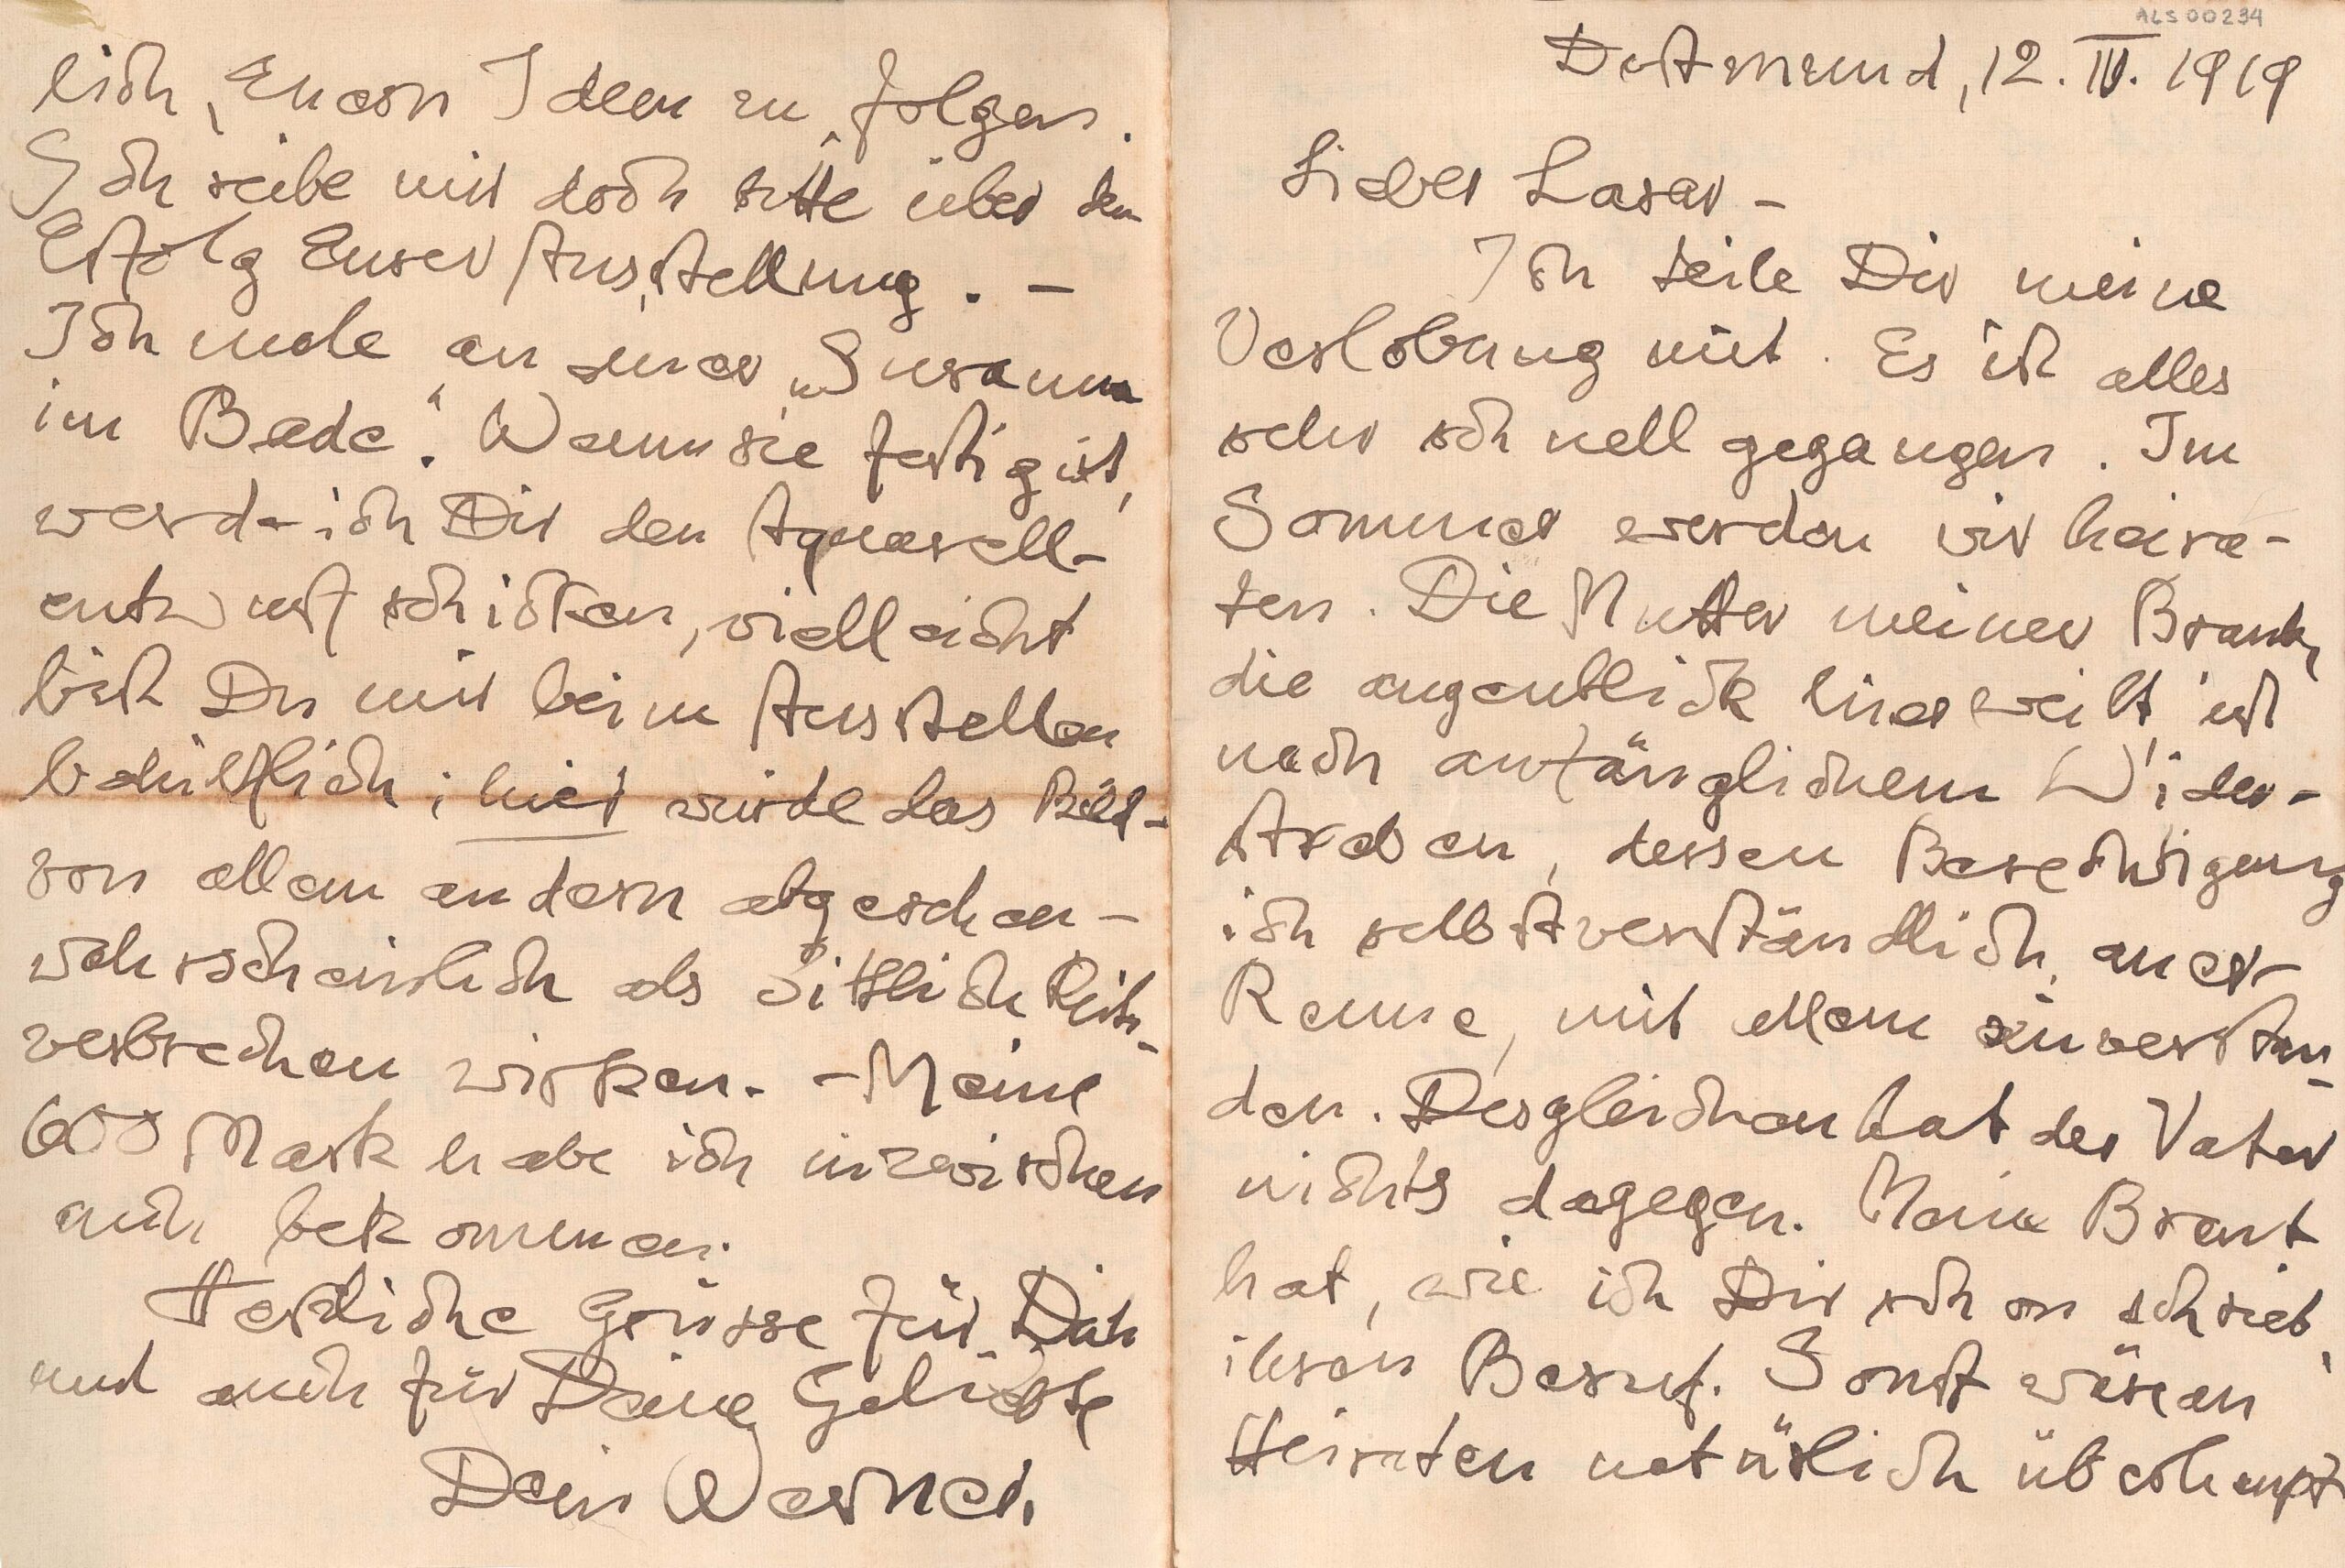 ALS00234
Dortmund, 12. IV. 1919
Lieber Lasar –
Ich teile Dir meine
Verlobung mit. Es ist alles
sehr schnell gegangen. Im
Sommer werden wir heira-
ten. Die Mutter meiner Braut,
die augenblickl. hier weilt, ist
nach anfänglichem Wider-
streben, dessen Berechtigung
ich selbstverständlich aner-
kenne, mit allem einverstan-
den. Desgleichen hat der Vater
nichts dagegen. Meine Braut
hat, wie ich Dir schon schrieb,
ihren Beruf. Sonst wäre an
Heiraten natürlich überhaupt
lich, Eueren Ideen zu folgen.
Schreibe mir doch bitte über den
Erfolg Eurer Ausstellung. –
Ich male an einer „Susanna
im Bade“. Wenn sie fertig ist,
werde ich Dir den Aquarell-
entwurf schicken, vielleicht
bist Du mir beim Ausstellen
behülflich; hier würde das Bild –
von allem andern abgesehen –
wahrscheinlich als Sittlichkeits-
verbrechen wirken. – Meine
600 Mark habe ich inzwischen
auch bekommen.
Herzliche Grüsse für Dich
und auch für Deine Geliebte
Dein Werner.